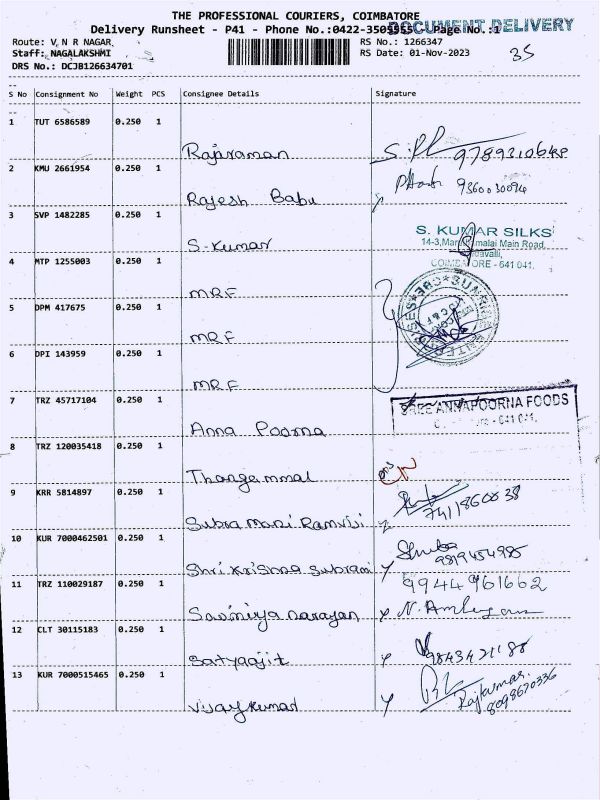 THE PROFESSIONAL COURIERS, COIMBATORE
DOCUMENT DELIVERY
Delivery Runsheet - P41 - Phone No.:0422-3505555 Page No.:1
Route: V N R NAGAR RS No.: 1266347
35
Staff: NAGALAKSHMI RS Date: 01-Nov-2023
DRS No.: DCJB126634701
S No Consignment No Weight PCS Consignee Details Signature
1 TUT 6586589 0.250 1
Rajaraman
2 KMU 2661954 0.250 1
9360030094
Rajesh Babu
3 SVP 1482285 0.250 1
S. KUMAR SILKS
S-Kumar
Main Road,
4 MTP 1255003 0.250 1
COIMBATORE - 641 041.
MRF
5 DPM 417675 0.250 1
MRF
6 DPI 143959 0.250 1
MRF
7 TRZ 45717104 0.250 1
SREE ANNAPOORNA FOODS
Anna Poorna
8 TRZ 120035418 0.250 1
Thangammal
9 KRR 5814897 0.250 1
7411860038
Subra Mani
10 KUR 7000462501 0.250 1
Shri Krishna Subrami
11 TRZ 110029187 0.250 1
9944961662
narayan
12 CLT 30115183 0.250 1
Satyaajit
9843421188
13 KUR 7000515465 0.250 1
Rajkumar
8098670336
Vijaykumar